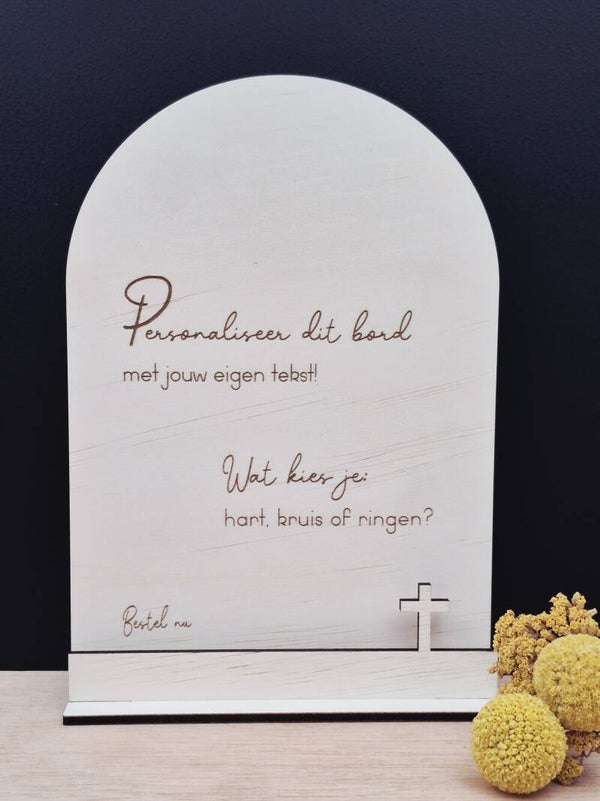 Personaliseer dit bord
met jouw eigen tekst!
Wat kies je:
hart, kruis of ringen?
Bestel nu